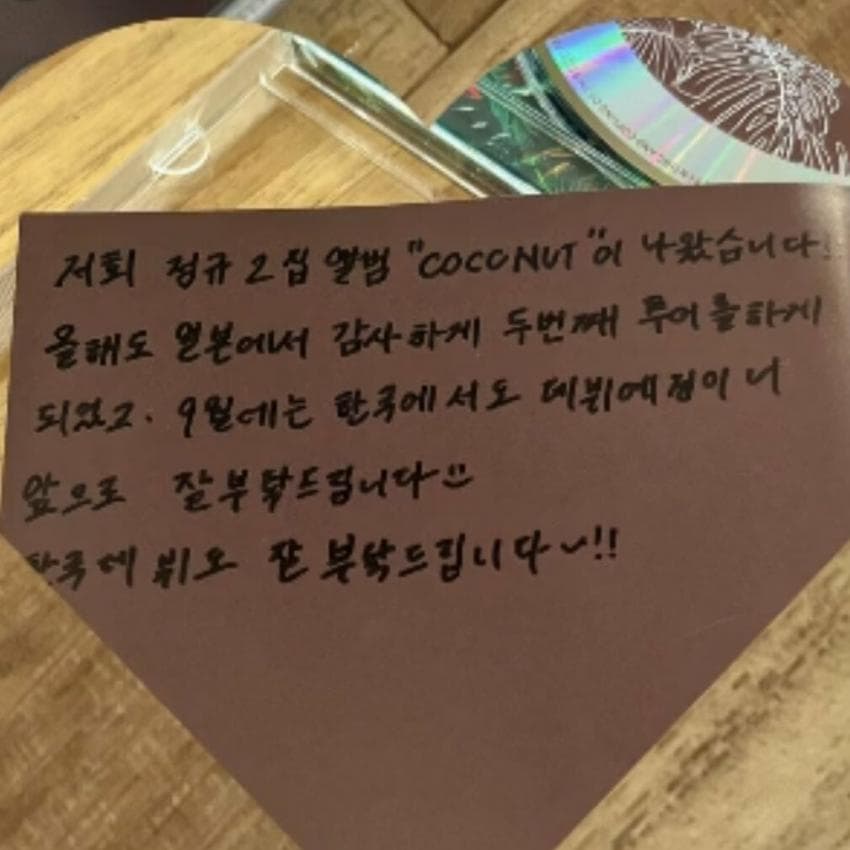 저희 정규 2집 앨범 "COCONUT"이 나왔습니다!!
올해도 일본에서 감사하게 두번째 투어를하게
되었고. 9월에는 한국에서도 데뷔예정이니
앞으로 잘부탁드립니다
한국데뷔도 잘 부탁드립니다~!!